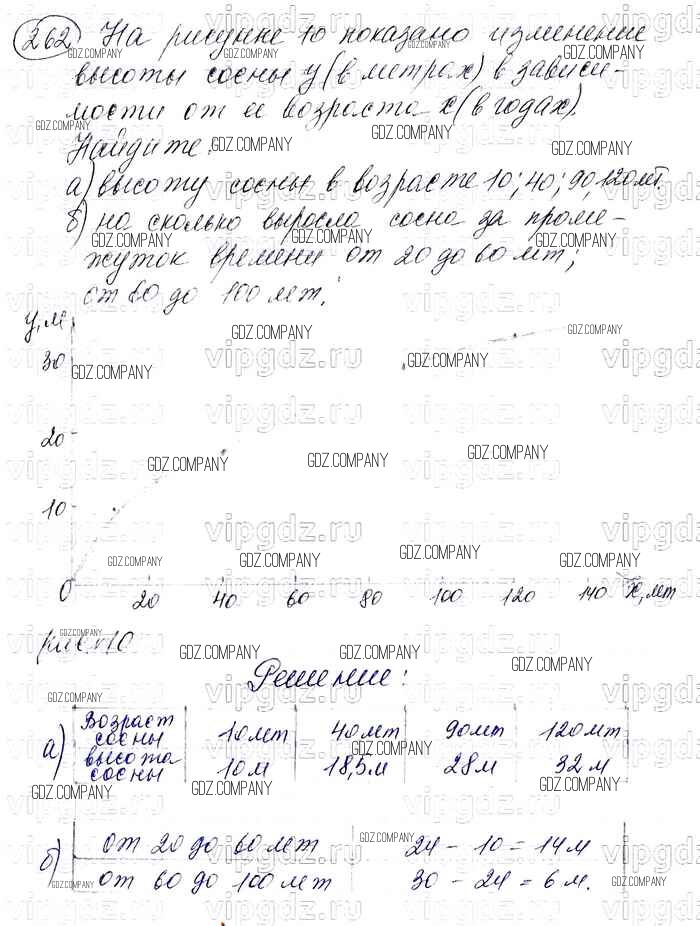 262 На рисунке 10 показано изменение
высоты сосны y (в метрах) в зависи-
мости от ее возраста x (в годах).
Найдите:
а) высоту сосны в возрасте 10; 40; 90, 120 лет.
б) на сколько выросла сосна за проме-
жуток времени от 20 до 60 лет;
от 60 до 100 лет.
y, м
30
20
10
0 20 40 60 80 100 120 140 x, лет
рис. 10
Решение:
а) Возраст сосны 10 лет 40 лет 90 лет 120 лет
высота сосны 10 м 18,5 м 28 м 32 м
б) от 20 до 60 лет 24 - 10 = 14 м
от 60 до 100 лет 30 - 24 = 6 м.
GDZ.COMPANY
vipgdz.ru